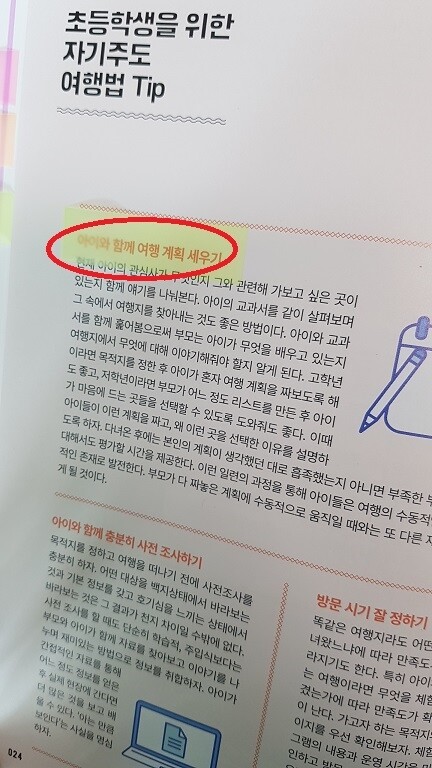 초등학생을 위한
자기주도
여행법 Tip
아이와 함께 여행 계획 세우기
현재 아이의 관심사가 무엇인지 그와 관련해 가보고 싶은 곳이
있는지 함께 얘기를 나눠본다. 아이의 교과서를 같이 살펴보며
그 속에서 여행지를 찾아내는 것도 좋은 방법이다. 아이와 교과
서를 함께 훑어봄으로써 부모는 아이가 무엇을 배우고 있는지
여행지에서 무엇에 대해 이야기해줘야 할지 알게 된다. 고학년
이라면 목적지를 정한 후 아이가 혼자 여행 계획을 짜보도록 해
도 좋고, 저학년이라면 부모가 어느 정도 리스트를 만든 후 아이
가 마음에 드는 곳들을 선택할 수 있도록 도와줘도 좋다. 이때
아이들이 이런 계획을 짜고, 왜 이런 곳을 선택한 이유를 설명하
도록 하자. 다녀온 후에는 본인의 계획이 생각했던 대로 흡족했는지 아니면 부족한 부
대해서도 평가할 시간을 제공한다. 이런 일련의 과정을 통해 아이들은 여행의 수동적
적인 존재로 발전한다. 부모가 다 짜놓은 계획에 수동적으로 움직일 때와는 또 다른 자
게 될 것이다.
아이와 함께 충분히 사전 조사하기
목적지를 정하고 여행을 떠나기 전에 사전조사를
충분히 하자. 어떤 대상을 백지상태에서 바라보는
것과 기본 정보를 갖고 호기심을 느끼는 상태에서
바라보는 것은 그 결과가 천지 차이일 수밖에 없다.
사전 조사를 할 때도 단순히 학습적, 주입식보다는
부모와 아이가 함께 자료를 찾아보고 이야기를 나
누며 재미있는 방법으로 정보를 취합하자. 아이가
간접적인 자료를 통해
어느 정도 정보를 얻은
후 실제 현장에 간다면
더 많은 것을 보고 배
울 수 있다. '아는 만큼
보인다'는 사실을 명심
하자.
방문 시기 잘 정하기
똑같은 여행지라도 어떤
녀왔느냐에 따라 만족도
라지기도 한다. 특히 아이
는 여행이라면 무엇을 체험
겼는가에 따라 만족도가 확
이 난다. 가고자 하는 목적지의
이지를 우선 확인해보자. 체험
그램의 내용과 운영 시간은 미
인하고 방문
024